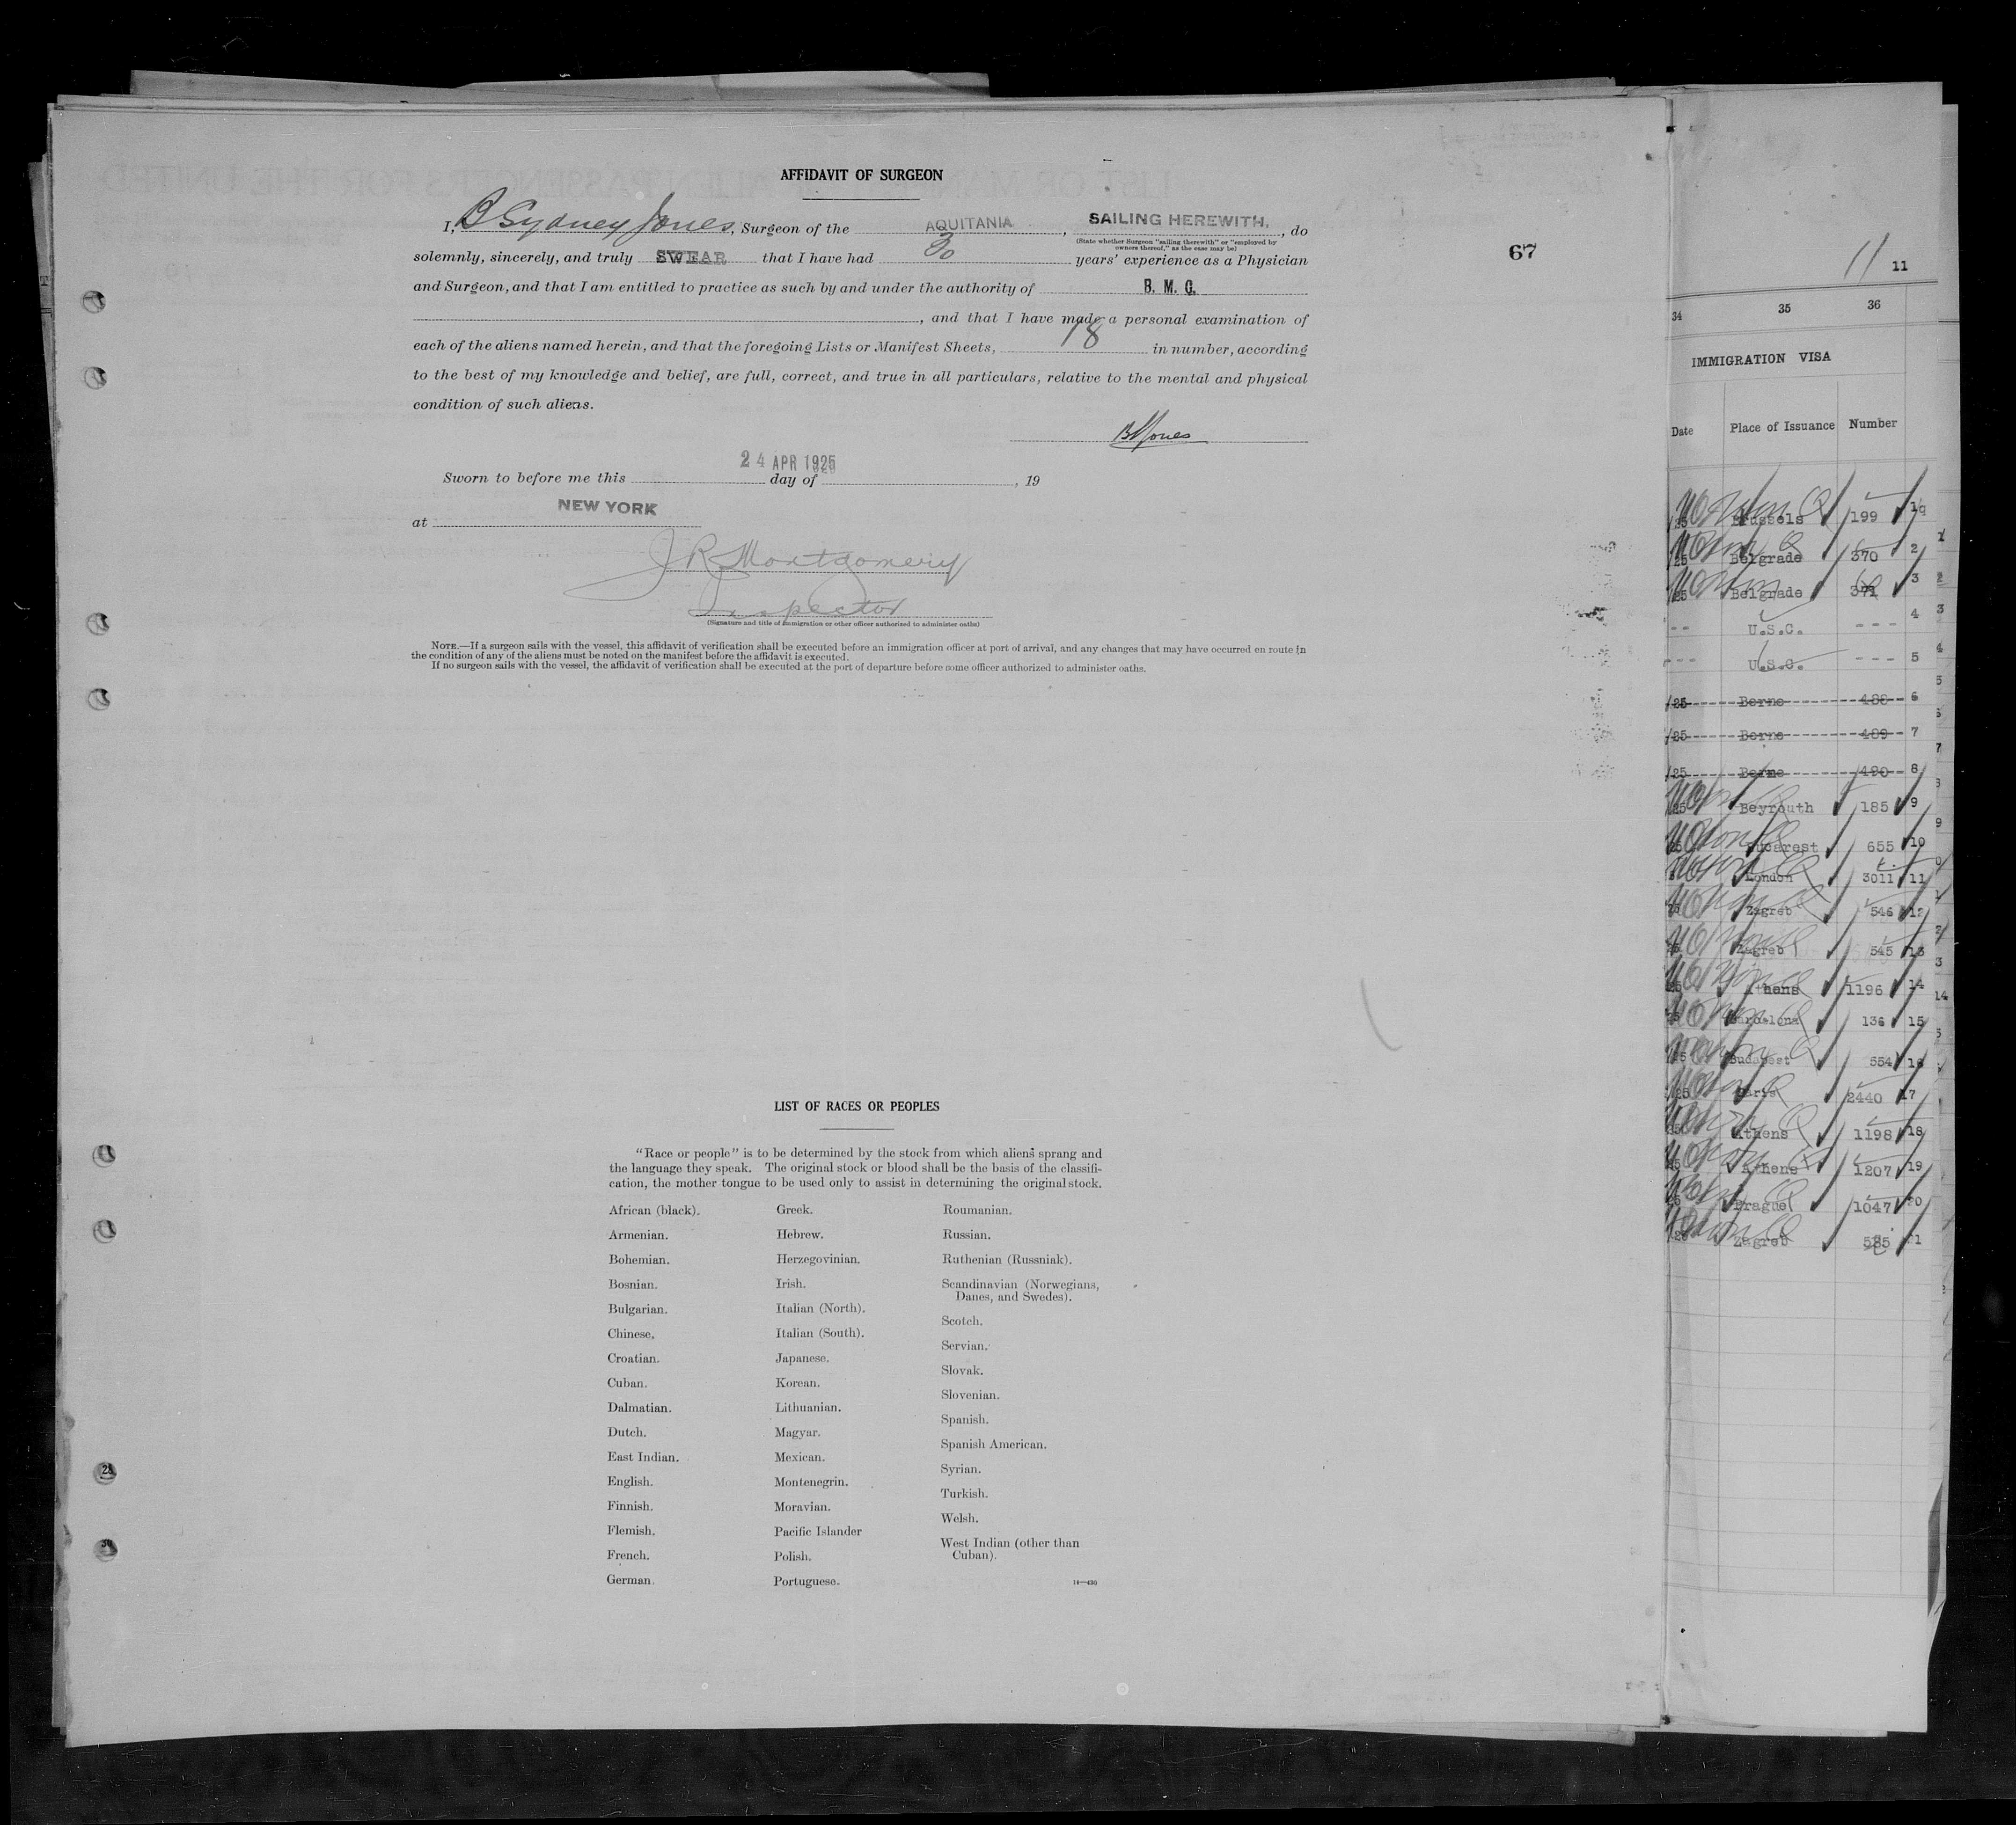 AFFIDAVIT OF SURGEON
I, B Sydney Jones, Surgeon of the AQUITANIA, SAILING HEREWITH, do
(State whether Surgeon "sailing therewith" or "employed by
owners thereof," as the case may be)
solemnly, sincerely, and truly SWEAR that I have had 30 years' experience as a Physician
and Surgeon, and that I am entitled to practice as such by and under the authority of B. M. C.
, and that I have made a personal examination of
each of the aliens named herein, and that the foregoing Lists or Manifest Sheets, 18 in number, according
to the best of my knowledge and belief, are full, correct, and true in all particulars, relative to the mental and physical
condition of such aliens.
BSJones
Sworn to before me this 24 APR 1925 day of , 19
at NEW YORK
J R Montgomery
Inspector
(Signature and title of immigration or other officer authorized to administer oaths)
NOTE.—If a surgeon sails with the vessel, this affidavit of verification shall be executed before an immigration officer at port of arrival, and any changes that may have occurred en route in
the condition of any of the aliens must be noted on the manifest before the affidavit is executed.
If no surgeon sails with the vessel, the affidavit of verification shall be executed at the port of departure before come officer authorized to administer oaths.
67
LIST OF RACES OR PEOPLES
"Race or people" is to be determined by the stock from which aliens sprang and
the language they speak. The original stock or blood shall be the basis of the classifi-
cation, the mother tongue to be used only to assist in determining the original stock.
African (black).
Armenian.
Bohemian.
Bosnian.
Bulgarian.
Chinese.
Croatian.
Cuban.
Dalmatian.
Dutch.
East Indian.
English.
Finnish.
Flemish.
French.
German.
Greek.
Hebrew.
Herzegovinian.
Irish.
Italian (North).
Italian (South).
Japanese.
Korean.
Lithuanian.
Magyar.
Mexican.
Montenegrin.
Moravian.
Pacific Islander
Polish.
Portuguese.
Roumanian.
Russian.
Ruthenian (Russniak).
Scandinavian (Norwegians,
Danes, and Swedes).
Scotch.
Servian.
Slovak.
Slovenian.
Spanish.
Spanish American.
Syrian.
Turkish.
Welsh.
West Indian (other than
Cuban).
14—430
11 11
34 35 36
IMMIGRATION VISA
Date Place of Issuance Number
Brussels 199
Belgrade 370 2
Belgrade 371 3
-- U.S.C. --- 4
--- U.S.C. --- 5
/25 Berne 488 6
/25 Berne 489 7
/25 Berne 490 8
Beyrouth 185 9
Bucarest 655 10
London 3011 11
Zagreb 546 12
Zagreb 545 13
Athens 1196 14
Barcelona 136 15
Budapest 554 16
Paris 2440 17
Athens 1198 18
Athens 1207 19
Prague 1047 20
Zagreb 585 21